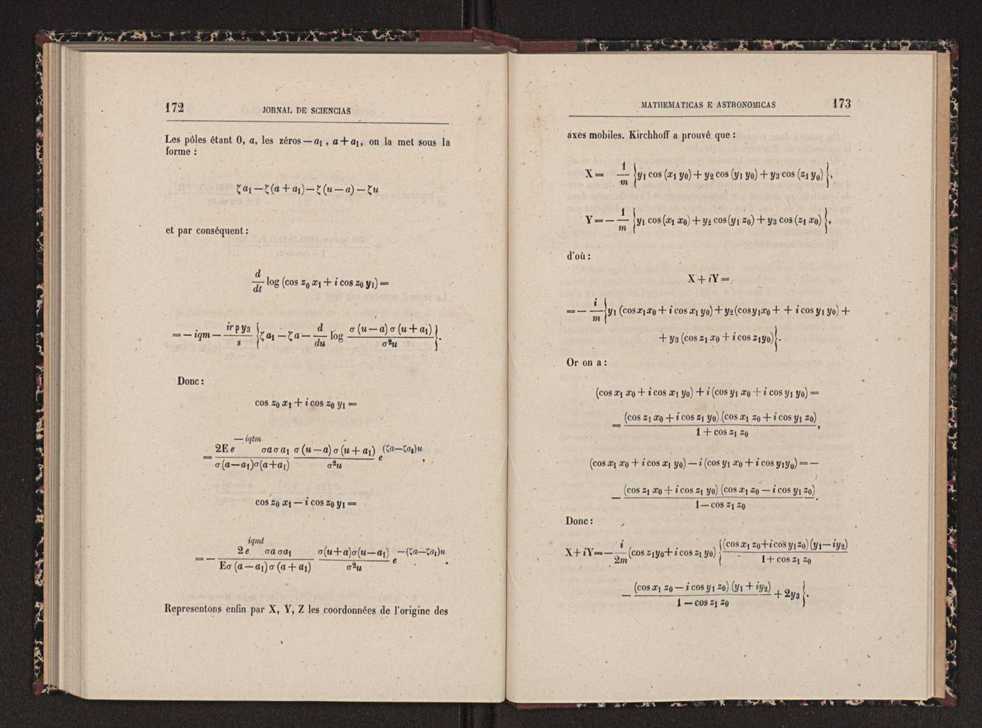 172 JORNAL DE SCIENCIAS
Les pôles étant 0, a, les zéros — a₁ , a + a₁, on la met sous la
forme :
ζ a₁ — ζ (a + a₁) — ζ (u — a) — ζu
et par conséquent :
d/dt log (cos z₀ x₁ + i cos z₀ y₁) =
= — iqm — irpy₃/s {ζ a₁ — ζ a — d/du log σ (u — a) σ (u + a₁)/σ²u}.
Donc :
cos z₀ x₁ + i cos z₀ y₁ =
= 2E e^(—iqtm) σa σ a₁/σ (a—a₁)σ(a+a₁) σ (u — a) σ (u + a₁)/σ²u e^((ζa—ζa₁)u) ,
cos z₀ x₁ — i cos z₀ y₁ =
= — 2 e^(iqmt) σa σa₁/Eσ (a — a₁) σ (a + a₁) σ(u+a)σ(u—a₁)/σ²u e^(—(ζa—ζa₁)u) .
Representons enfin par X, Y, Z les coordonnées de l'origine des
MATHEMATICAS E ASTRONOMICAS 173
axes mobiles. Kirchhoff a prouvé que :
X = 1/m {y₁ cos (x₁ y₀) + y₂ cos (y₁ y₀) + y₃ cos (z₁ y₀)},
Y = — 1/m {y₁ cos (x₁ x₀) + y₂ cos (y₁ x₀) + y₃ cos (z₁ x₀)},
d'où :
X + iY =
= — i/m {y₁ (cos x₁x₀ + i cos x₁ y₀) + y₂ (cos y₁x₀ + + i cos y₁ y₀) +
+ y₃ (cos z₁ x₀ + i cos z₁y₀)}.
Or on a :
(cos x₁ x₀ + i cos x₁ y₀) + i (cos y₁ x₀ + i cos y₁ y₀) =
= (cos z₁ x₀ + i cos z₁ y₀) (cos x₁ z₀ + i cos y₁ z₀)/1 + cos z₁ z₀,
(cos x₁ x₀ + i cos x₁ y₀) — i (cos y₁ x₀ + i cos y₁y₀) = —
— (cos z₁ x₀ + i cos z₁ y₀) (cos x₁ z₀ — i cos y₁ z₀)/1 — cos z₁ z₀.
Donc :
X + iY = — i/2m (cos z₁y₀ + i cos z₁ y₀) {(cos x₁ z₀ + i cos y₁z₀) (y₁ — iy₂)/1 + cos z₁ z₀
— (cos x₁ z₀ — i cos y₁ z₀) (y₁ + iy₂)/1 — cos z₁ z₀ + 2y₃}.